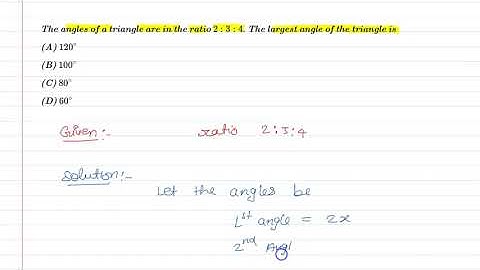 The angles of a triangle are in the ratio 2 : 3 : 4. The largest angle of the triangle is
(A) 120°
(B) 100°
(C) 80°
(D) 60°
Given:- ratio 2:3:4
Solution:-
Let the angles be
1st angle = 2x
2nd Angl